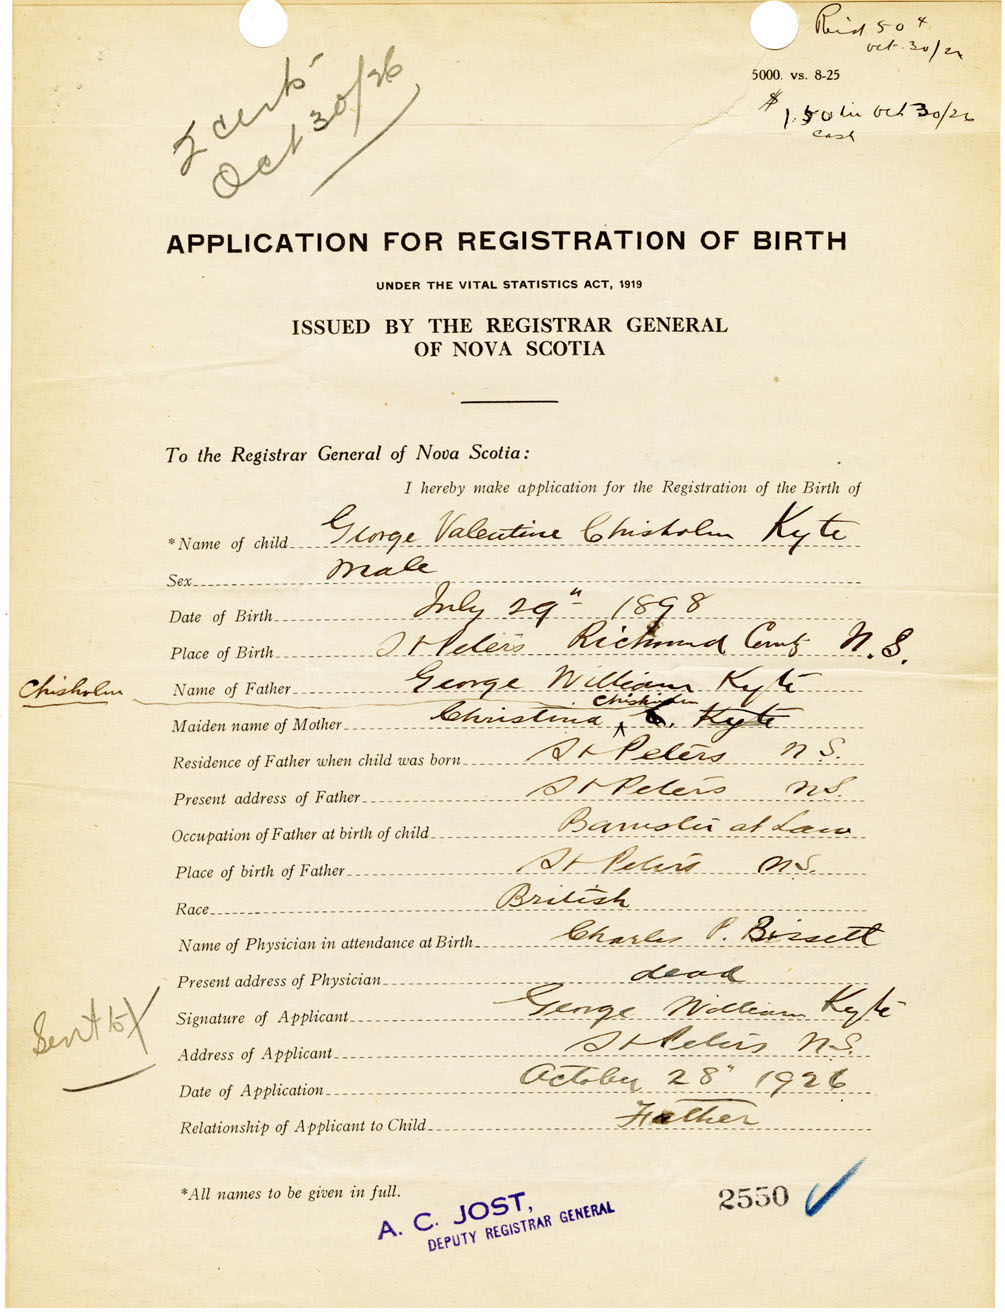 Rec'd 50¢
Oct. 30/26
5000. vs. 8-25
$1.50 in Oct 30/26
cash
2 certs
Oct 30/26
APPLICATION FOR REGISTRATION OF BIRTH
UNDER THE VITAL STATISTICS ACT, 1919
ISSUED BY THE REGISTRAR GENERAL
OF NOVA SCOTIA
To the Registrar General of Nova Scotia:
I hereby make application for the Registration of the Birth of
*Name of child George Valentine Chisholm Kyte
Sex Male
Date of Birth July 29" 1898
Place of Birth St Peters Richmond County N.S.
Chisholm
Name of Father George William Kyte
Chisholm
Maiden name of Mother Christina C. Kyte
Residence of Father when child was born St Peters N.S.
Present address of Father St Peters N.S.
Occupation of Father at birth of child Barrister at Law
Place of birth of Father St Peters N.S.
Race British
Name of Physician in attendance at Birth Charles P. Bissett
Present address of Physician dead
Signature of Applicant George William Kyte
Sent
Address of Applicant St Peters N.S.
Date of Application October 28" 1926
Relationship of Applicant to Child Father
*All names to be given in full.
2550
A. C. JOST,
DEPUTY REGISTRAR GENERAL